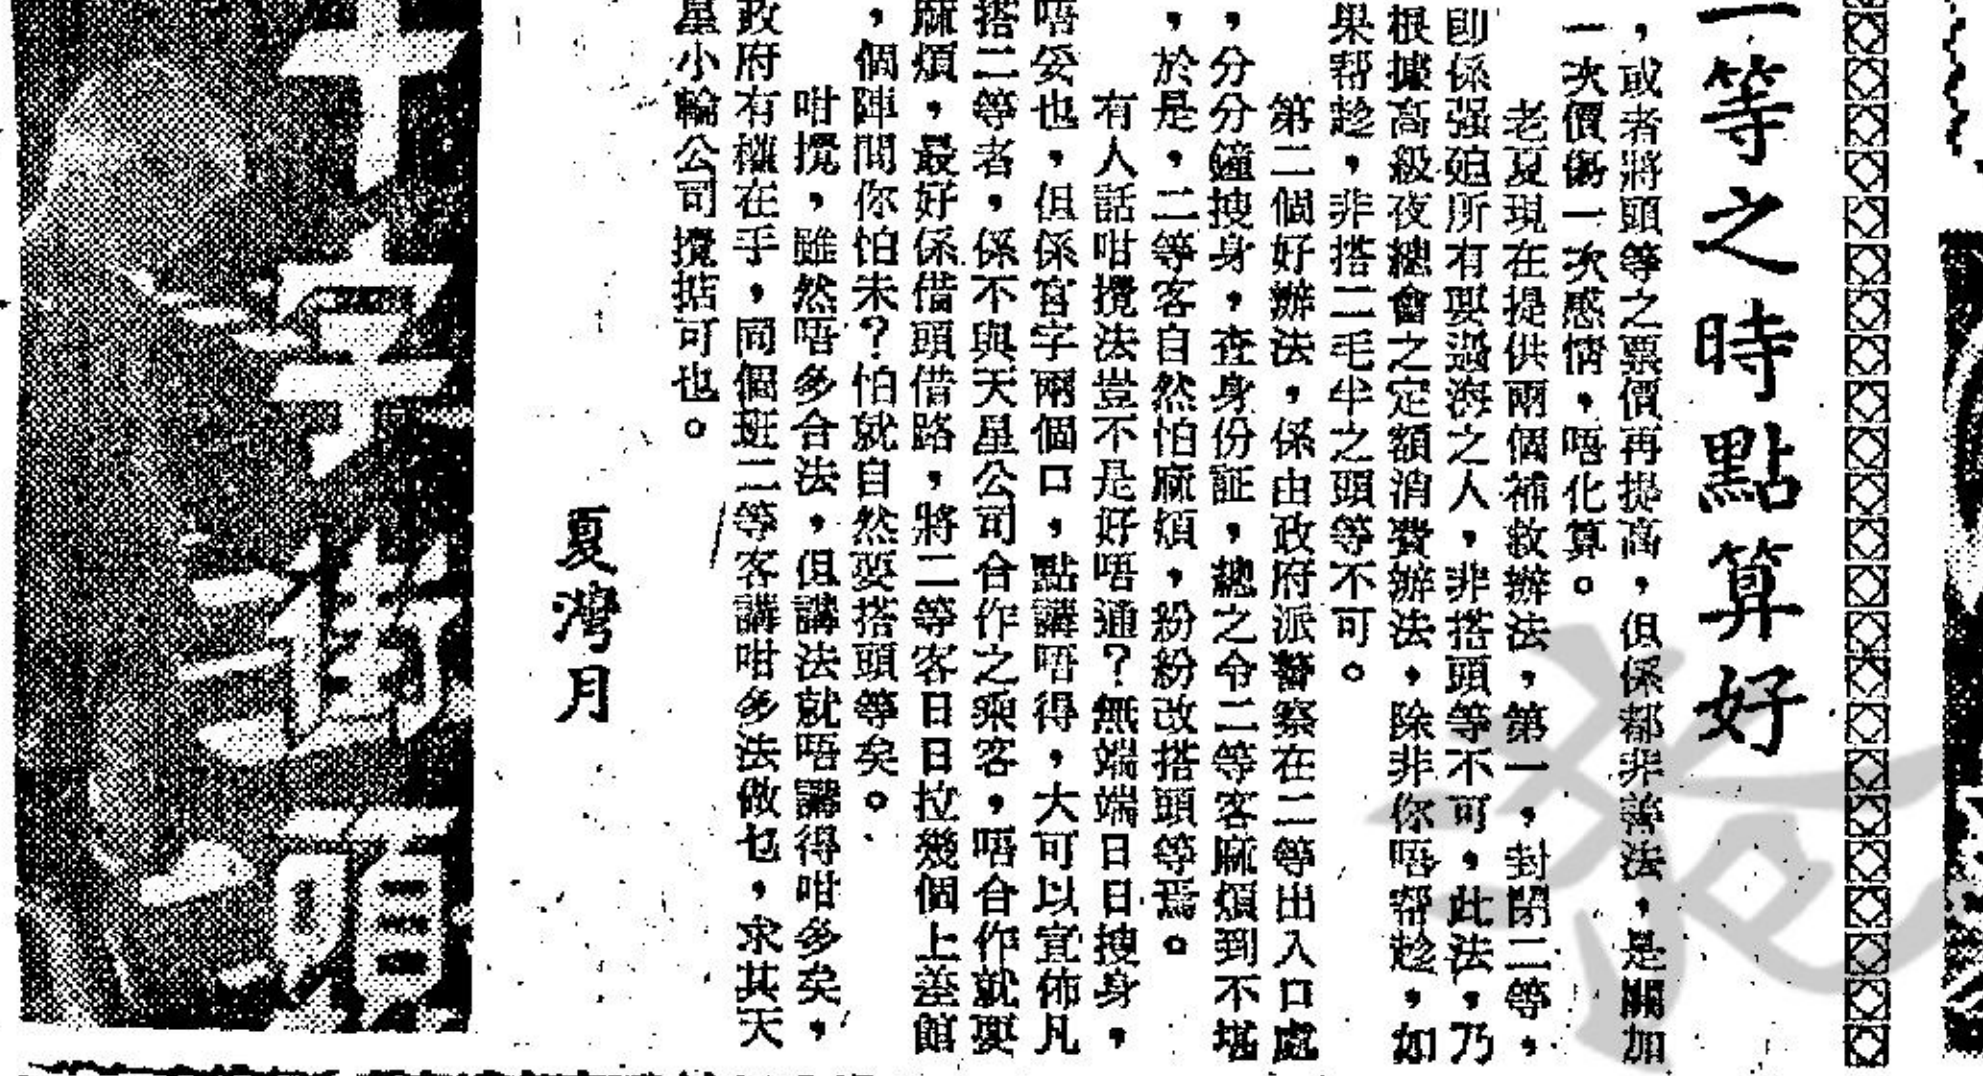 等之時點算好
，或者將頭等之票價再提高，但係都非善法，是關加
一次價傷一次感情，唔化算。
老夏現在提供兩個補救辦法，第一，封閉二等，
即係强廹所有要過海之人，非搭頭等不可，此法，乃
根據高級夜總會之定額消費辦法，除非你唔帮趁，如
果帮趁，非搭二毛半之頭等不可。
第二個好辦法，係由政府派警察在二等出入口處
，分分鐘搜身，查身份証，總之令二等客麻煩到不堪
，於是，二等客自然怕麻煩，紛紛改搭頭等焉。
有人話咁攪法豈不是好唔通？無端端日日搜身，
唔妥也，但係官字兩個口，點講唔得，大可以宣佈凡
搭二等者，係不與天星公司合作之乘客，唔合作就要
麻煩，最好係借頭借路，將二等客日日拉幾個上差館
，個陣間你怕未？怕就自然要搭頭等矣。
咁攪，雖然唔多合法，但講法就唔講得咁多矣，
政府有權在乎，同個班二等客講咁多法做乜，求其天
星小輪公司攪掂可也。
夏灣月
十字街頭